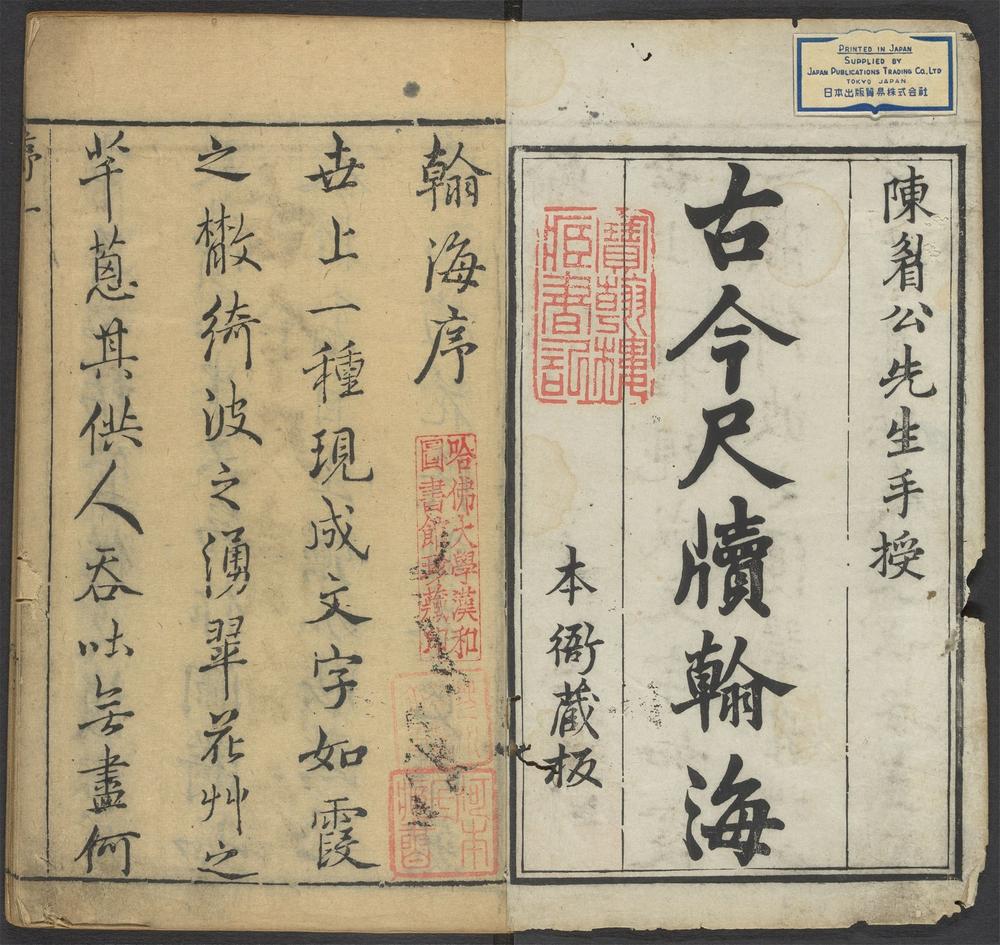 PRINTED IN JAPAN
SUPPLIED BY
JAPAN PUBLICATIONS TRADING CO., LTD
TOKYO JAPAN
日本出版貿易株式会社
陳眉公先生手授
古今尺牘翰海
本衙蔵板
翰海序
哈佛大學漢和
圖書館珍藏印
世上一種現成文字如霞
之散綺波之湧翠花艸之
芊蔥其供人吞吐無盡何
序
一